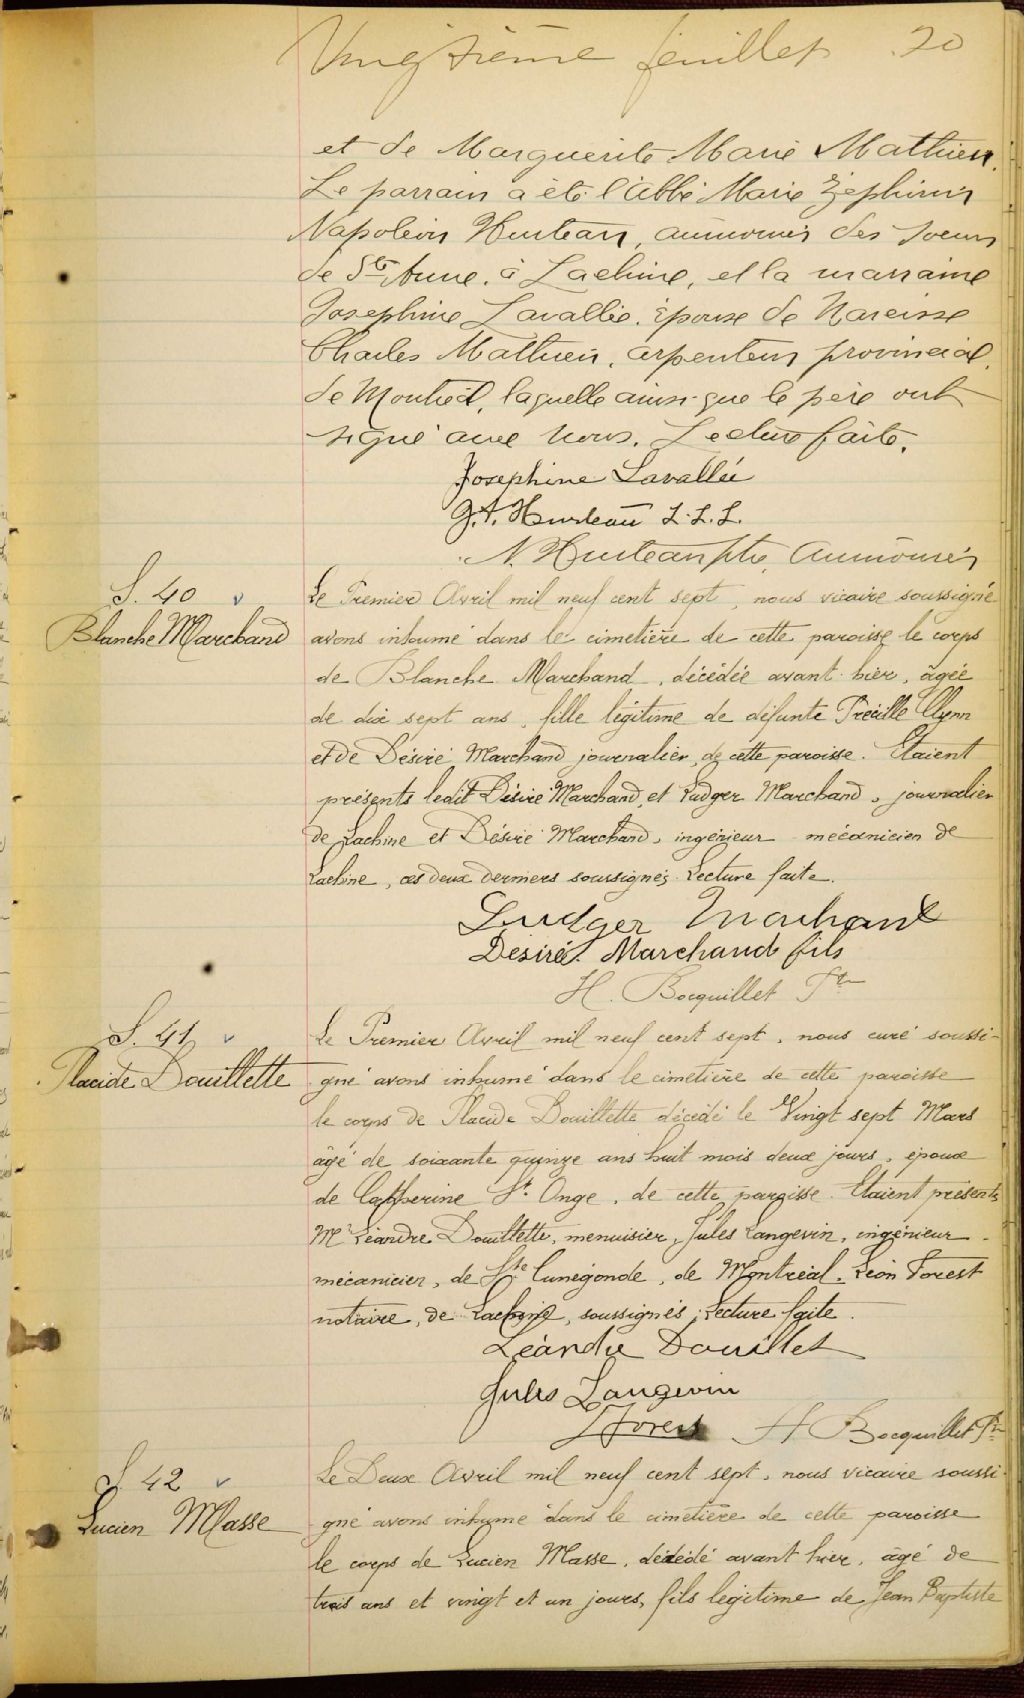 Vingtième feuillet 20
et de Marguerite Marie Mathieu.
Le parrain a été l'abbé Marie Zéphirin
Napoléon Hurteau, aumonier des soeurs
de Ste Anne, à Lachine, et la marraine
Josephine Lavallée, épouse de Narcisse
Charles Mathieu, arpenteur provincial,
de Montréal, laquelle ainsi que le père ont
signé avec nous. Lecture faite.
Josephine Lavallée
Hurteau L.L.L.
N. Hurteau ptre, aumônier
S. 40
Blanche Marchand
Le Premier Avril mil neuf cent sept, nous vicaire soussigné
avons inhumé dans le cimetière de cette paroisse le corps
de Blanche Marchand, décédée avant hier, âgée
de dix sept ans, fille légitime de défunte
et de Désiré Marchand journalier, de cette paroisse. Etaient
présents ledit Désiré Marchand, et Ludger Marchand, journalier
de Lachine et Désiré Marchand, ingénieur mécanicien de
Lachine, ces deux derniers soussignés. Lecture faite.
Ludger Marchand
Desiré Marchand fils
H. Bocquillet Ptre
S. 41
Placide Douillette
Le Premier Avril mil neuf cent sept, nous curé soussi-
gné avons inhumé dans le cimetière de cette paroisse
le corps de Placide Douillette décédé le Vingt sept Mars
âgé de soixante quinze ans huit mois deux jours, époux
de Catherine St. Onge, de cette paroisse. Etaient présents
Mr Léandre Douillette, menuisier, Jules Langevin, ingénieur
mécanicien, de Ste Cunégonde, de Montréal, Léon Forest
notaire, de Lachine, soussignés. Lecture faite.
Léandre Douillet
Jules Langevin
LForest H Bocquillet Ptre
S. 42
Lucien Masse
Le Deux Avril mil neuf cent sept, nous vicaire soussi-
gné avons inhumé dans le cimetière de cette paroisse
le corps de Lucien Masse, décédé avant hier, âgé de
trois ans et vingt et un jours, fils légitime de Jean Baptiste